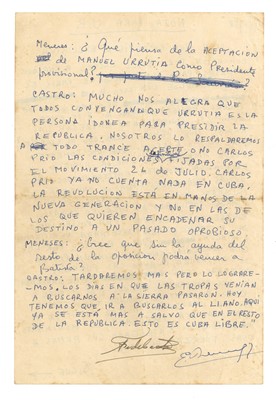 Meneses: ¿Qué piensa de la ACEPTACION
de MANUEL URRUTIA como Presidente
provisional?
CASTRO: MUCHO NOS ALEGRA QUE
TODOS CONVENGAN QUE URRUTIA ES LA
PERSONA IDONEA PARA PRESIDIR LA
REPUBLICA, NOSOTROS LO RESPALDAREMOS
A TODO TRANCE A ESTE, O NO CARLOS
PRIO LAS CONDICIONES FIJADAS POR
EL MOVIMIENTO 26 de JULIO. CARLOS
PRIO YA NO CUENTA NADA EN CUBA,
LA REVOLUCION ESTÁ EN MANOS DE LA
NUEVA GENERACION Y NO EN LAS DE
LOS QUE QUIEREN ENCADENAR SU
DESTINO A UN PASADO OPROBIOSO.
MENESES: ¿Cree que sin la ayuda del
resto de la oposicion podrá vencer a
Batista?
CASTRO: TARDAREMOS MAS PERO LO LOGRARE-
-MOS. LOS DIAS EN QUE LAS TROPAS VENIAN
A BUSCARNOS A LA SIERRA PASARON. HOY
TENEMOS QUE IR A BUSCARLOS AL LLANO. AQUI
YA SE ESTÁ MAS A SALVO QUE EN EL RESTO
DE LA REPUBLICA. ESTO ES CUBA LIBRE."